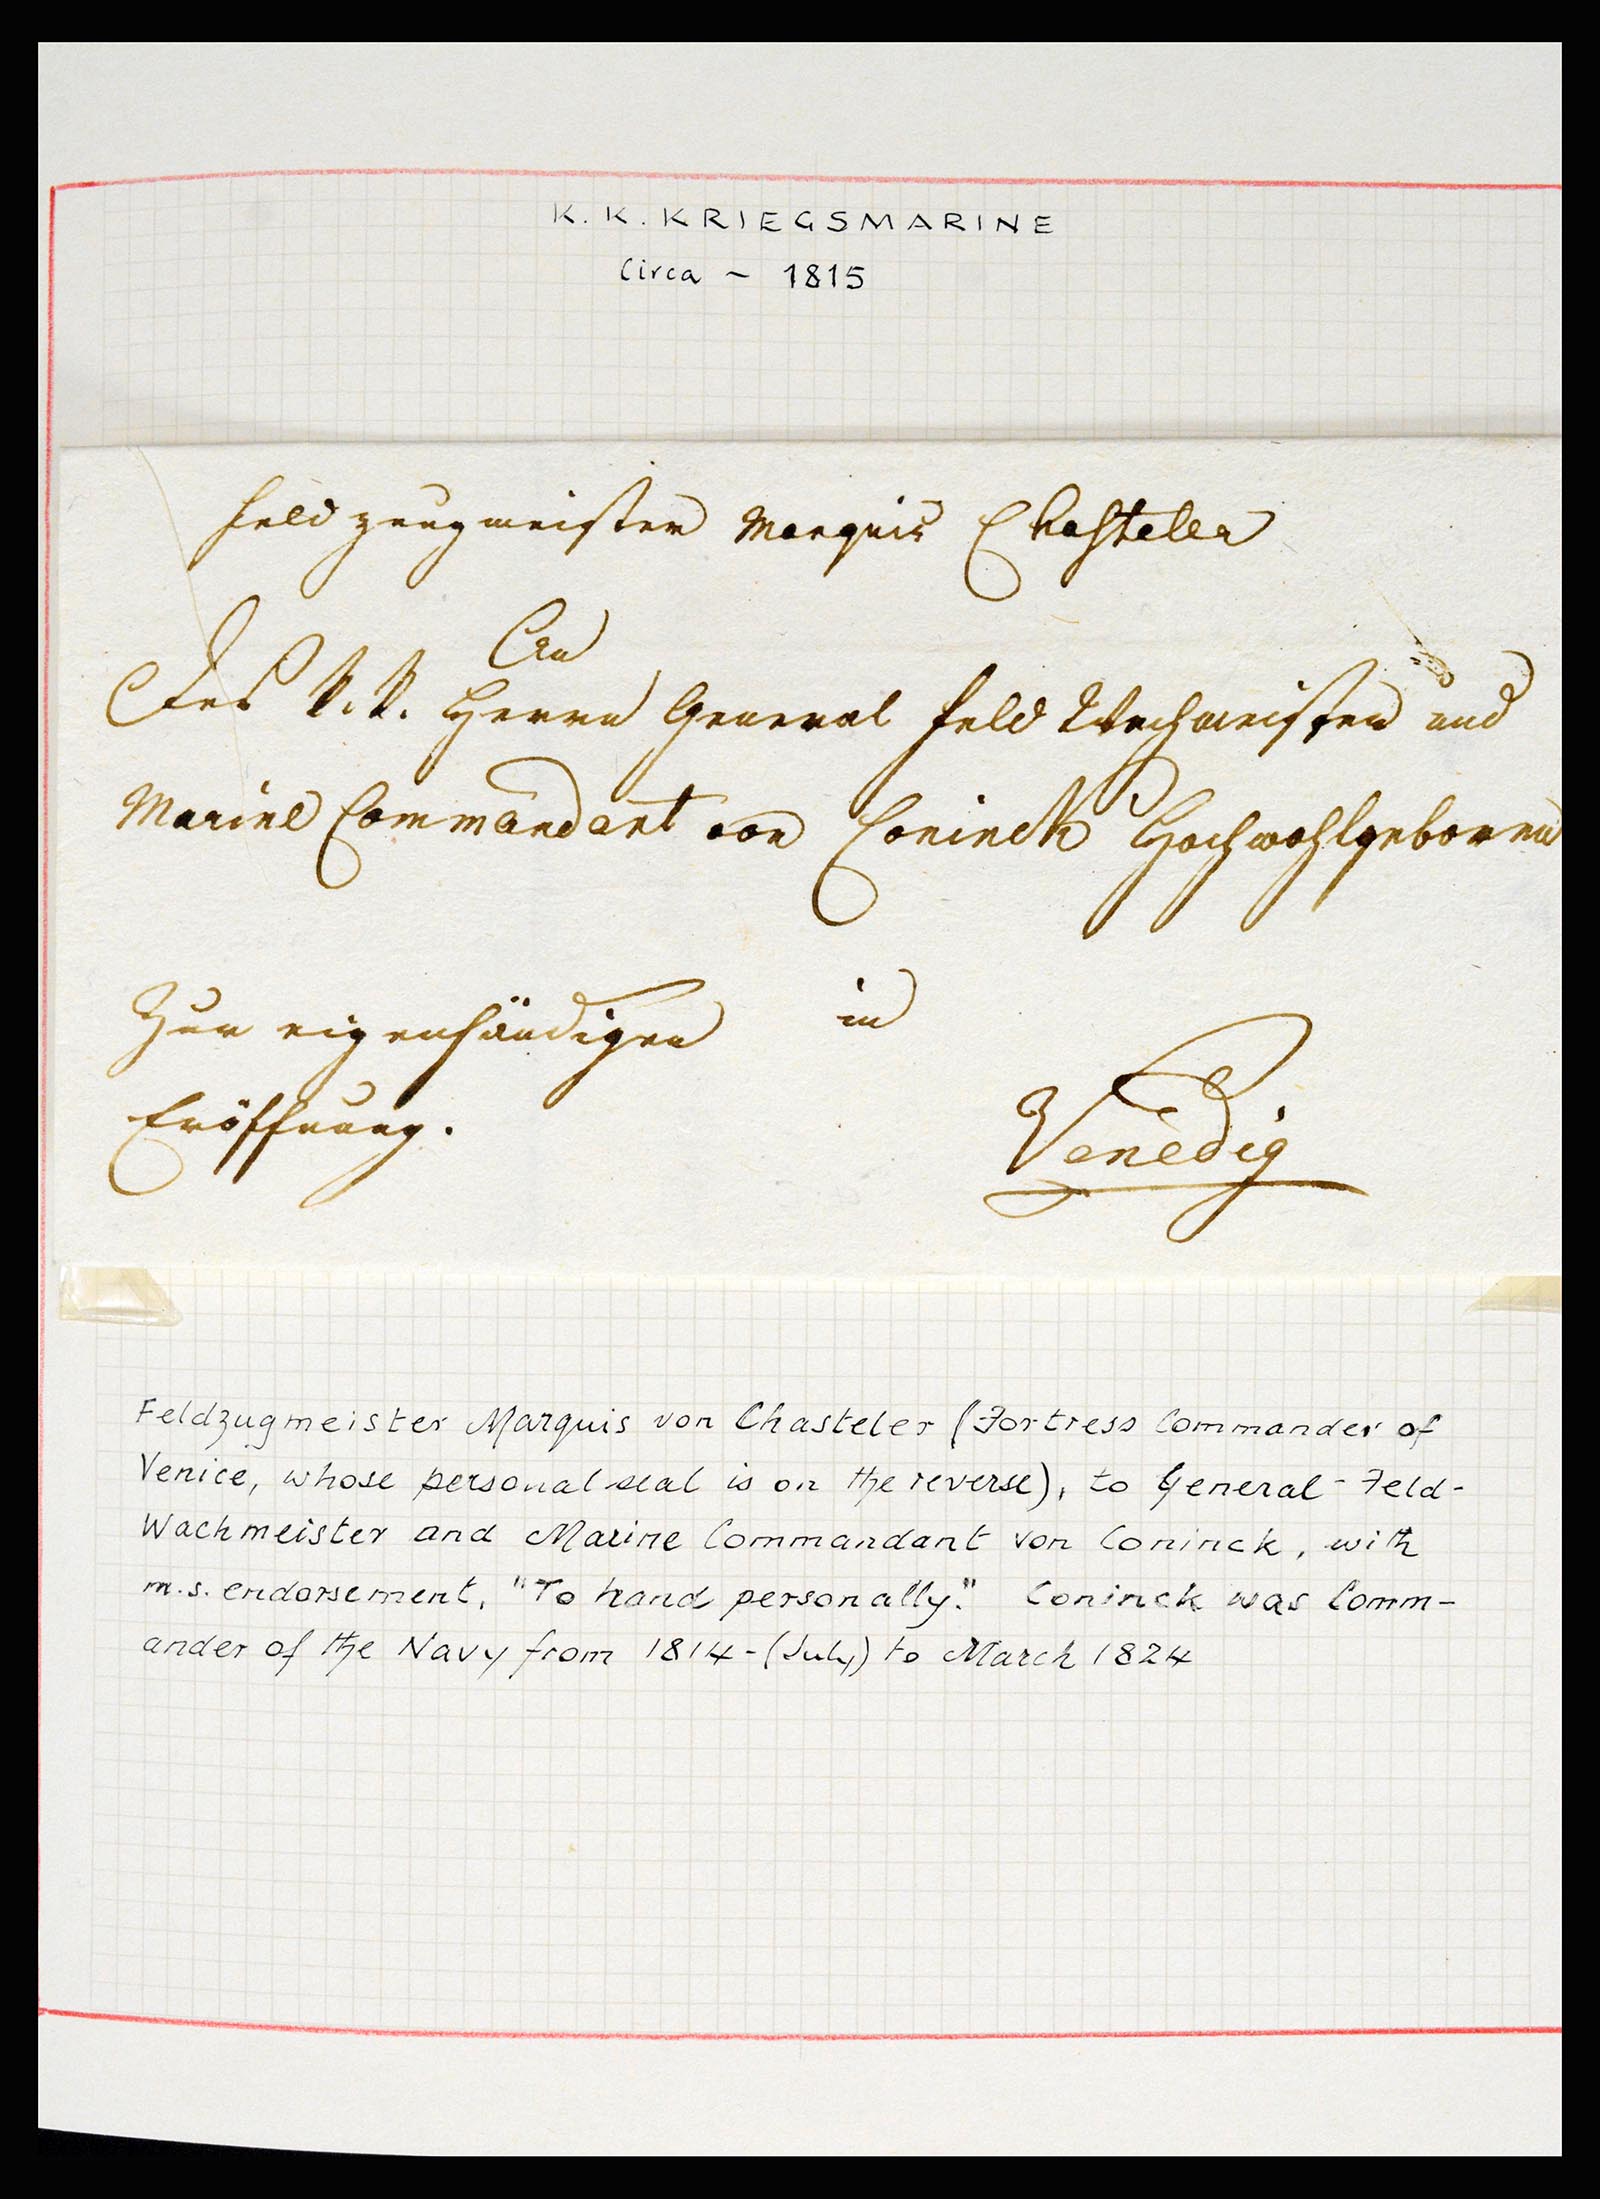 K. K. KRIEGSMARINE
Circa ~ 1815
Feldzeugmeister Marquis Chasteler
An
Des K. K. Herrn General Feld Wachmeister und
Marine Commandant von Coninck Hochwohlgeboren
Zur eigenhändigen
in
Eröffnung.
Venedig
Feldzugmeister Marquis von Chasteler (Fortress Commander of
Venice, whose personal seal is on the reverse), to General-Feld-
Wachmeister and Marine Commandant von Coninck, with
m.s. endorsement, "To hand personally." Coninck was Comm-
ander of the Navy from 1814-(July) to March 1824